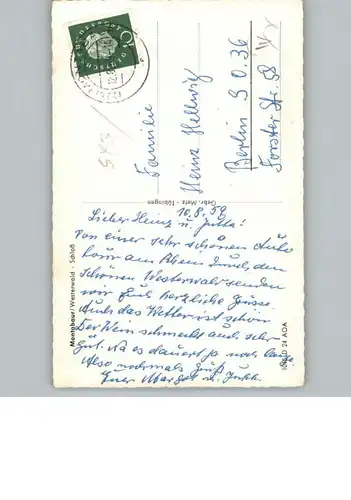 Familie
Heinz Hellwig
Berlin S.O. 36
Forster Str. 58
Gebr. Metz · Tübingen
Montabaur/Westerwald · Schloß
10.8.59
Lieber Heinz u. Jutta!
Von einer sehr schönen Auto
tour am Rhein durch den
schönen Westerwald senden
wir Euch herzliche Grüsse.
Auch das Wetter ist schön
Der Wein schmeckt auch sehr
gut. Na es dauert ja noch
Also nochmals Gruß
Euer Margot u.
24 AOA
DEUTSCHE BUNDESPOST